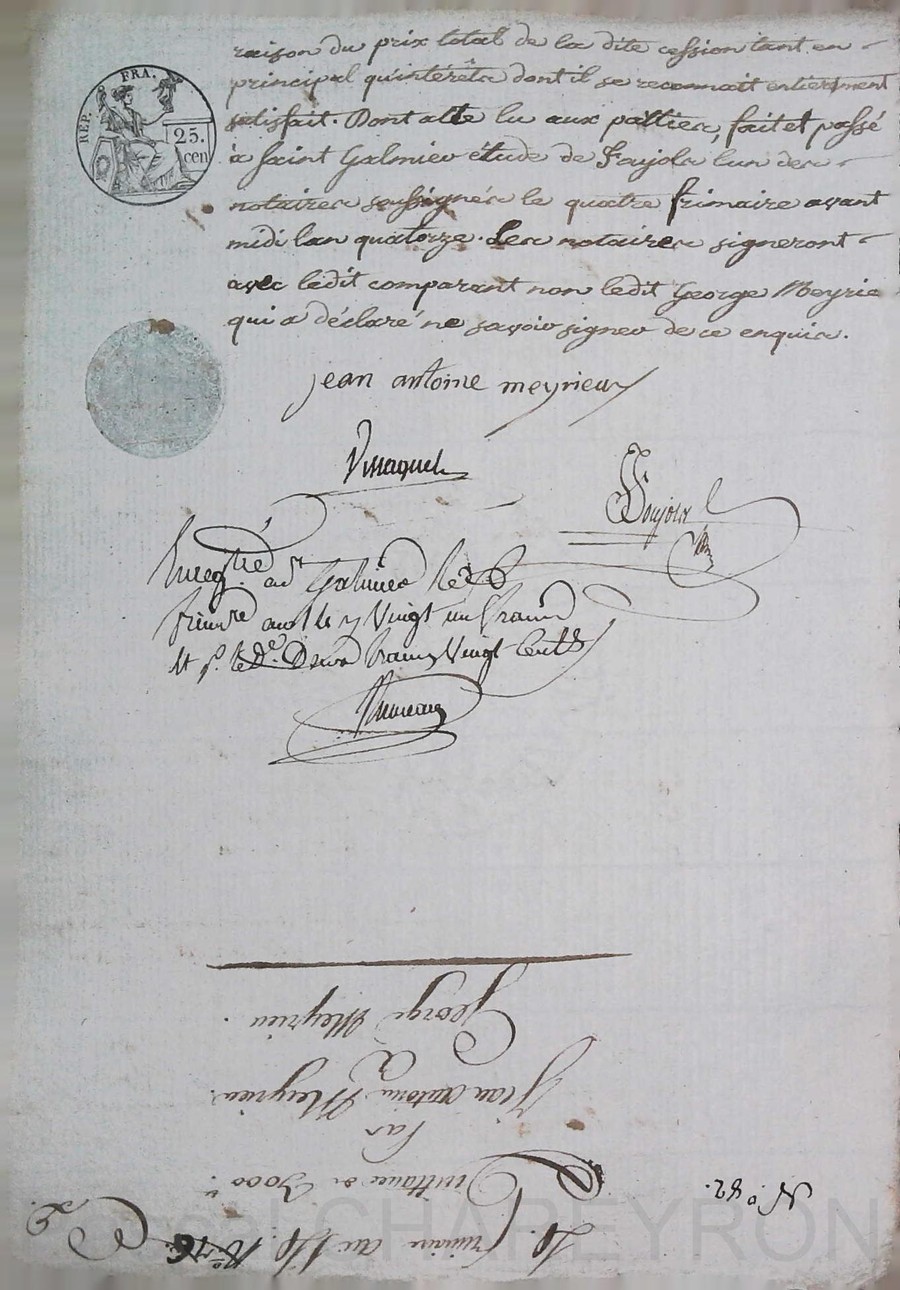 REP. FRA.
25.
cen
raison du prix total de la dite cession tant en
principal qu'intérêts dont il se reconnait entierement
satisfait. Dont acte lu aux parties, fait et passé
à Saint Galmier étude de Faujols l'un des
notaires soussignés le quatre frimaire avant
midi lan quatorze. Les notaires signeront
avec ledit comparant non ledit George Meyrie
qui a déclaré ne savoir signer de ce enquis.
jean antoine meyrieux
Faujols
Enregtré a St Galmier le 6
frimre
vingt un francs
vingt
George Meyrieu.
à
Jean antoine Meyrieu.
Par
Quittance de 3000.
frimaire an 14.
N.o 82.
CHAPEYRON